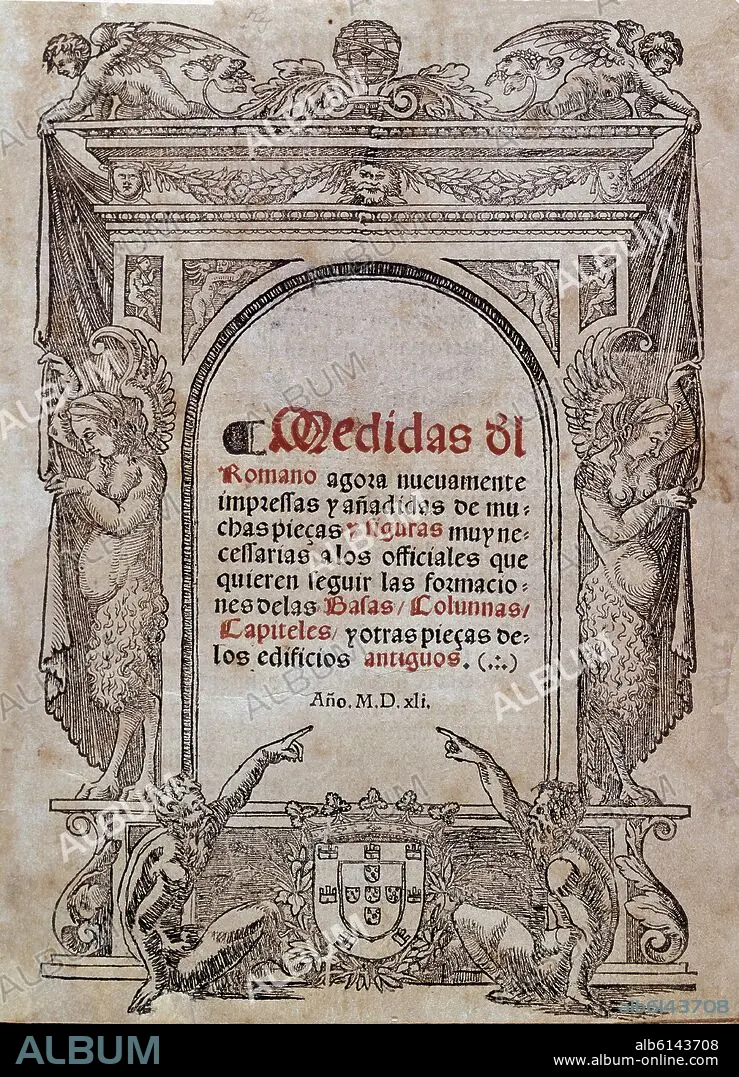 Medidas dl
Romano agora nueuamente
impressas y añadidas de mu-
chas pieças y figuras muy ne-
cessarias alos officiales que
quieren seguir las formacio-
nes delas Basas/ Colunnas/
Capiteles/ y otras pieças de-
los edificios antiguos. (.·.)
Año. M. D. xli.
ALBUM
ab6143708
www.album-online.com